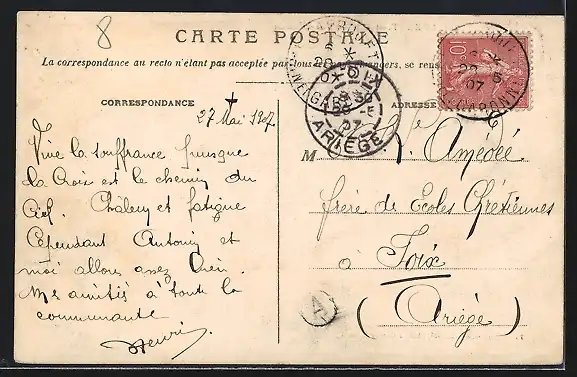 8
CARTE POSTALE
La correspondance au recto n'étant pas acceptée par tous
CORRESPONDANCE
ADRESSE
27 Mai 1907
Vive la souffrance puisque
la Croix est le chemin du
Ciel. Chaleur et fatigue
Cependant Antonin et
moi allons assez bien.
Mes amitiés à toute la
communauté
Henri
M
Amédée
frère des Ecoles Chrétiennes
à Foix
(Ariège)
A
10
07
FOIX
ARIEGE